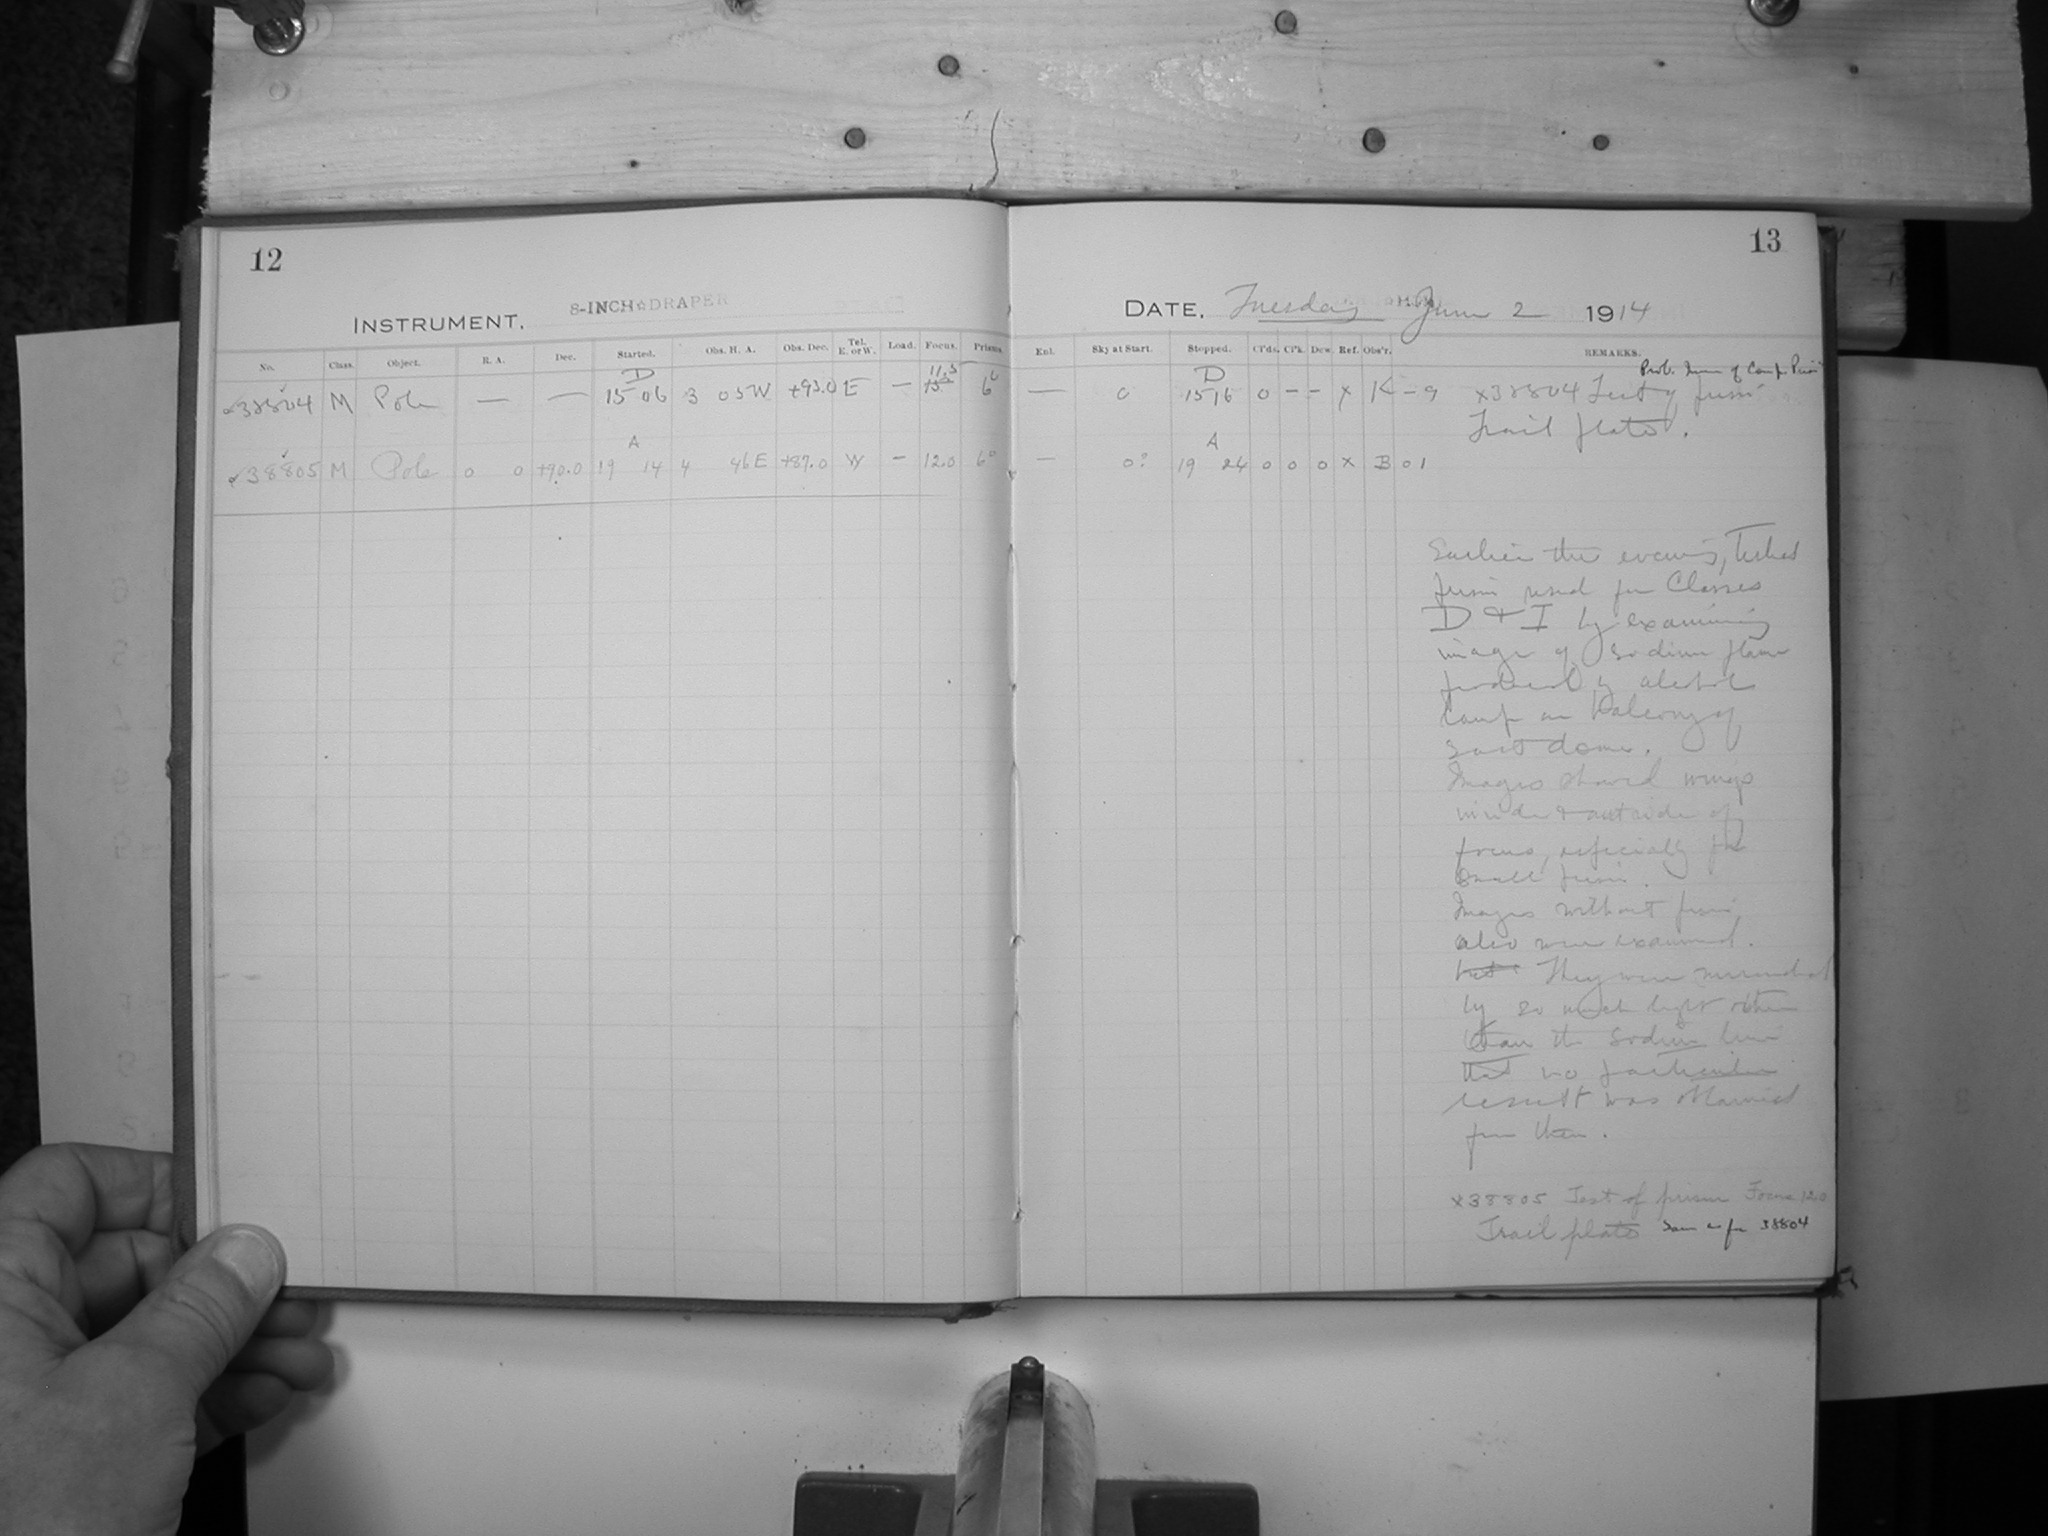 12
INSTRUMENT, 8-INCH DRAPER
No. Class. Object. R. A. Dec. Started. Obs. H. A. Obs. Dec. Tel. E. or W. Load. Focus. Prisms.
38804 M Pole — — D 15 06 3 05 W +93.0 E — 11.5 6
38805 M Pole 0 0 +90.0 A 19 14 4 46 E +87.0 W – 12.0 6
13
DATE, Tuesday June 2 1914
Enl. Sky at Start. Stopped. Cl'ds. Cl'k. Dew. Ref. Obs'r. REMARKS.
Prob. of Comp.
— 0 D 15 16 0 – – x K – 9 x38804 Test of prism
Trail plate.
— 0? A 19 24 0 0 0 x B 01
Earlier the evening, tested
prism used for Classes
D & I by examining
image of sodium flame
produced by alcohol
lamp on balcony of
dome.
Images showed wings
inside & outside of
focus, especially the
small prism.
Images without prism,
also were examined.
but They were surrounded
by so much light other
than the sodium line
that no particular
result was obtained
from them.
x38805 Test of prism Focus 12.0
Trail plate Same as for 38804